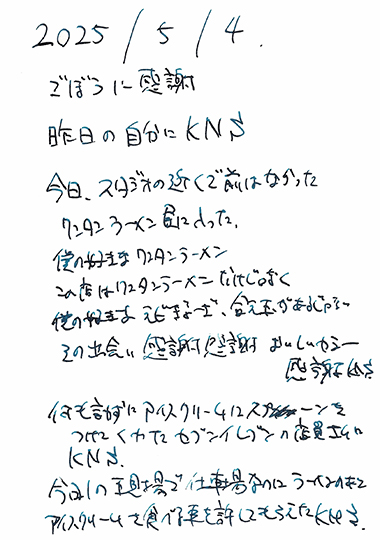 2025/5/4.
ごぼうに感謝
昨日の自分にKNS
今日、スタジオの近くで前はなかった
ワンタンラーメン屋に入った。
僕の好きなワンタンラーメン
この店はワンタンラーメンだけじゃなく
僕の好きな
その出会い感謝感謝 おいしいから
感謝KNS
何も言わずにアイスクリームにスプーンを
つけてくれたセブンイレブンの店員さんに
KNS.
今日の現場で仕事場なのにラーメンのあと
アイスクリームを食べる事を許してもらえたKNS.